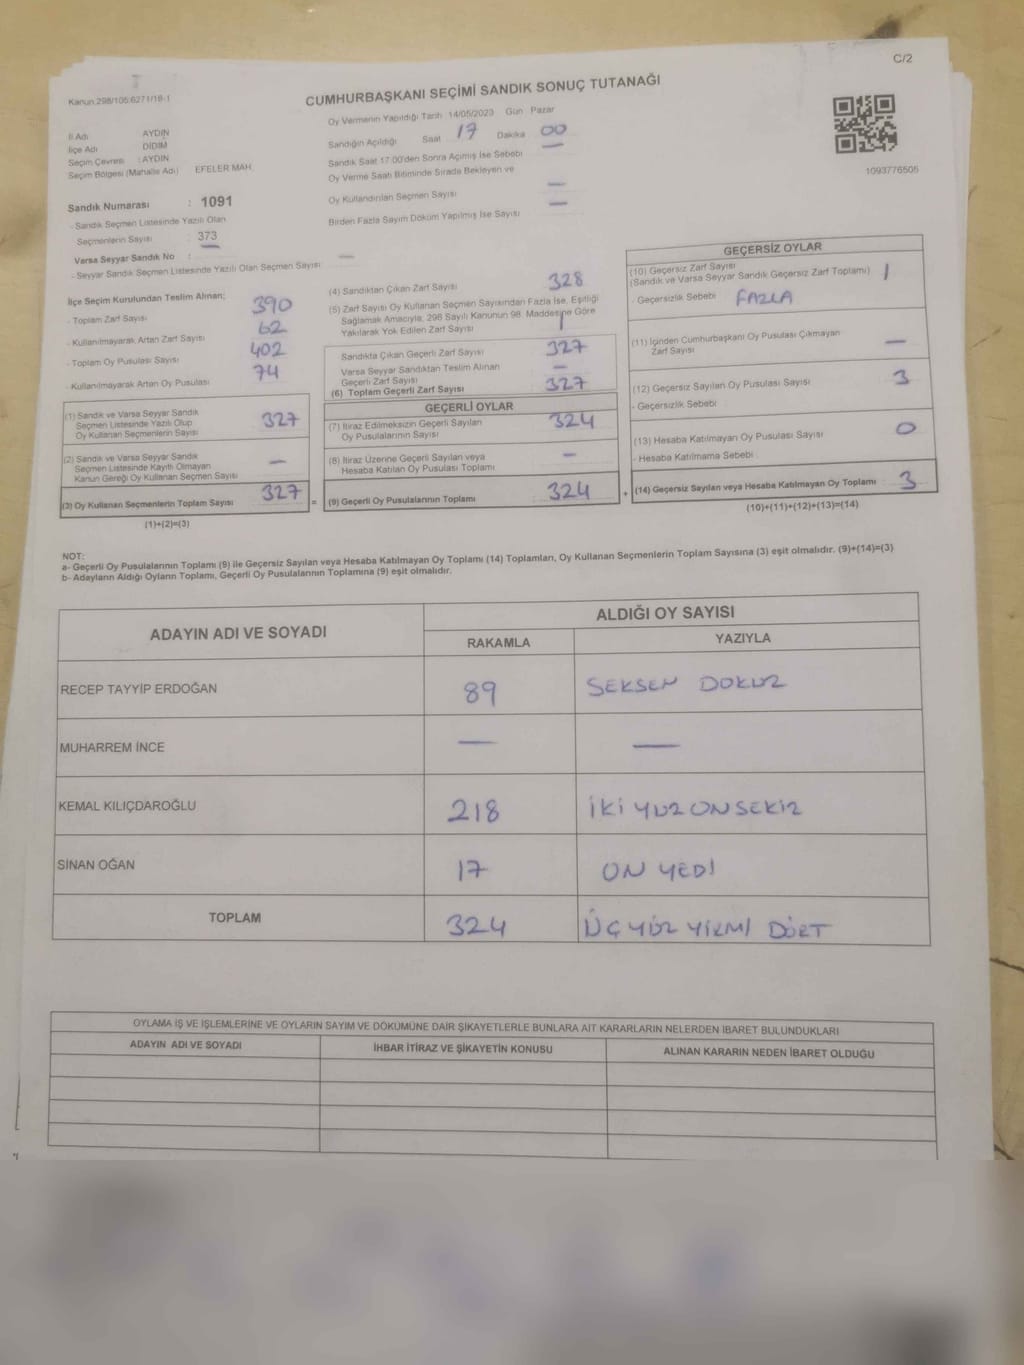 C/2
Kanun 298/105:6271/18-1
CUMHURBAŞKANI SEÇİMİ SANDIK SONUÇ TUTANAĞI
Oy Vermenin Yapıldığı Tarih 14/05/2023 Gün Pazar
Sandığın Açıldığı Saat 17 Dakika 00
Sandık Saat 17.00'den Sonra Açımış İse Sebebi —
Oy Verme Saati Bitiminde Sırada Bekleyen ve
Oy Kullandırılan Seçmen Sayısı —
Birden Fazla Sayım Döküm Yapılmış İse Sayısı —
1093776505
İl Adı AYDIN
İlçe Adı DİDİM
Seçim Çevresi : AYDIN
Seçim Bölgesi (Mahalle Adı) EFELER MAH.
Sandık Numarası : 1091
- Sandık Seçmen Listesinde Yazılı Olan
Seçmenlerin Sayısı : 373
Varsa Seyyar Sandık No :
- Seyyar Sandık Seçmen Listesinde Yazılı Olan Seçmen Sayısı: —
İlçe Seçim Kurulundan Teslim Alınan;
- Toplam Zarf Sayısı 390
- Kullanılmayarak Artan Zarf Sayısı 62
- Toplam Oy Pusulası Sayısı 402
- Kullanılmayarak Artan Oy Pusulası 74
(1) Sandık ve Varsa Seyyar Sandık
Seçmen Listesinde Yazılı Olup
Oy Kullanan Seçmenlerin Sayısı 327
(2) Sandık ve Varsa Seyyar Sandık
Seçmen Listesinde Kayıtlı Olmayan
Kanun Gereği Oy Kullanan Seçmen Sayısı —
(3) Oy Kullanan Seçmenlerin Toplam Sayısı 327 =
(1)+(2)=(3)
(4) Sandıktan Çıkan Zarf Sayısı 328
(5) Zarf Sayısı Oy Kullanan Seçmen Sayısından Fazla İse, Eşitliği
Sağlamak Amacıyla, 298 Sayılı Kanunun 98. Maddesine Göre
Yakılarak Yok Edilen Zarf Sayısı 1
Sandıkta Çıkan Geçerli Zarf Sayısı 327
Varsa Seyyar Sandıktan Teslim Alınan
Geçerli Zarf Sayısı —
(6) Toplam Geçerli Zarf Sayısı 327
GEÇERLİ OYLAR
(7) İtiraz Edilmeksizin Geçerli Sayılan
Oy Pusulalarının Sayısı 324
(8) İtiraz Üzerine Geçerli Sayılan veya
Hesaba Katılan Oy Pusulası Toplamı —
(9) Geçerli Oy Pusulalarının Toplamı 324 +
GEÇERSİZ OYLAR
(10) Geçersiz Zarf Sayısı
(Sandık ve Varsa Seyyar Sandık Geçersiz Zarf Toplamı) 1
- Geçersizlik Sebebi FAZLA
(11) İçinden Cumhurbaşkanı Oy Pusulası Çıkmayan
Zarf Sayısı —
(12) Geçersiz Sayılan Oy Pusulası Sayısı 3
- Geçersizlik Sebebi
(13) Hesaba Katılmayan Oy Pusulası Sayısı 0
- Hesaba Katılmama Sebebi
(14) Geçersiz Sayılan veya Hesaba Katılmayan Oy Toplamı 3
(10)+(11)+(12)+(13)=(14)
NOT:
a- Geçerli Oy Pusulalarının Toplamı (9) ile Geçersiz Sayılan veya Hesaba Katılmayan Oy Toplamı (14) Toplamları, Oy Kullanan Seçmenlerin Toplam Sayısına (3) eşit olmalıdır. (9)+(14)=(3)
b- Adayların Aldığı Oyların Toplamı, Geçerli Oy Pusulalarının Toplamına (9) eşit olmalıdır.
ADAYIN ADI VE SOYADI ALDIĞI OY SAYISI
RAKAMLA YAZIYLA
RECEP TAYYİP ERDOĞAN 89 SEKSEN DOKUZ
MUHARREM İNCE — —
KEMAL KILIÇDAROĞLU 218 İKİ YÜZ ON SEKİZ
SİNAN OĞAN 17 ON YEDİ
TOPLAM 324 ÜÇ YÜZ YİRMİ DÖRT
OYLAMA İŞ VE İŞLEMLERİNE VE OYLARIN SAYIM VE DÖKÜMÜNE DAİR ŞİKAYETLERLE BUNLARA AİT KARARLARIN NELERDEN İBARET BULUNDUKLARI
ADAYIN ADI VE SOYADI İHBAR İTİRAZ VE ŞİKAYETİN KONUSU ALINAN KARARIN NEDEN İBARET OLDUĞU